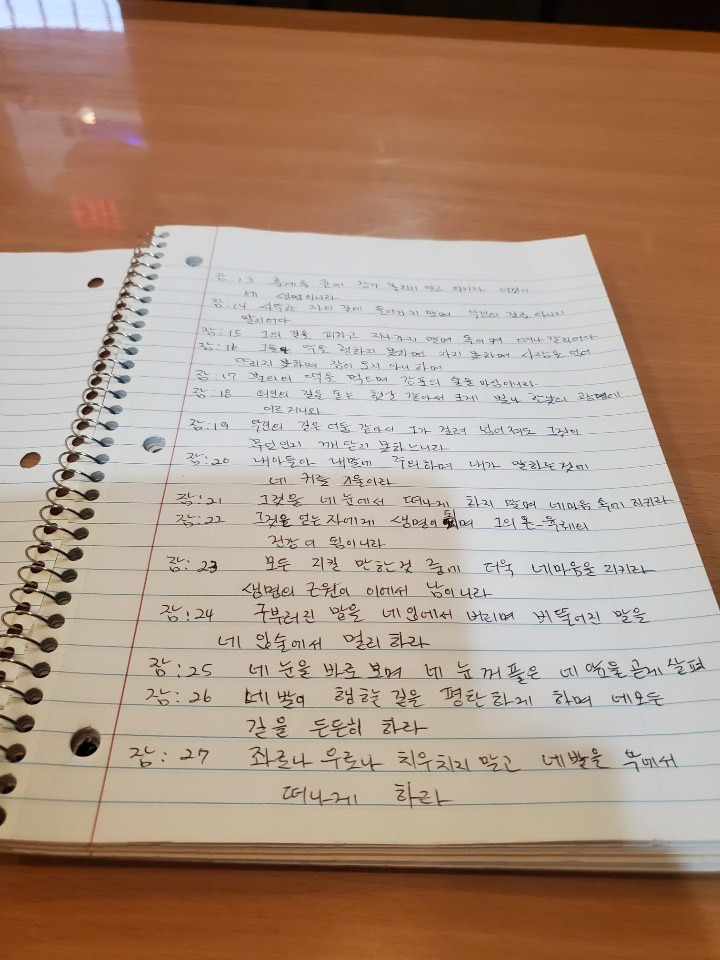 잠:13 훈계를 굳게 잡아 놓치지 말고 지키라 이것이
네 생명이니라
잠:14 사특한 자의 길에 들어가지 말며 악인의 길로 다니지
말지어다
잠:15 그의 길을 피하고 지나가지 말며 돌이켜 떠나갈지어다
잠:16 그들은 악을 행하지 못하면 자지 못하며 사람을 넘어
뜨리지 못하며 잠이 오지 아니하며
잠:17 불의의 떡을 먹으며 강포의 술을 마심이니라
잠:18 의인의 길은 돋는 햇살 같아서 크게 빛나 한낮의 광명에
이르거니와
잠:19 악인의 길은 어둠 같아서 그가 걸려 넘어져도 그것이
무엇인지 깨닫지 못하느니라
잠:20 내아들아 내말에 주의하며 내가 말하는것에
네 귀를 기울이라
잠:21 그것을 네 눈에서 떠나게 하지 말며 네마음 속에 지키라
잠:22 그것을 얻는자에게 생명이 되며 그의 온 육체의
건강이 됨이니라
잠:23 모든 지킬 만한것 중에 더욱 네마음을 지키라
생명의 근원이 이에서 남이니라
잠:24 구부러진 말을 네입에서 버리며 비뚤어진 말을
네 입술에서 멀리 하라
잠:25 네 눈을 바로 보며 네 눈꺼풀은 네 앞을 곧게 살펴
잠:26 네 발이 행하는 길을 평탄하게 하며 네모든
길을 든든히 하라
잠:27 좌로나 우로나 치우치지 말고 네발을 악에서
떠나게 하라